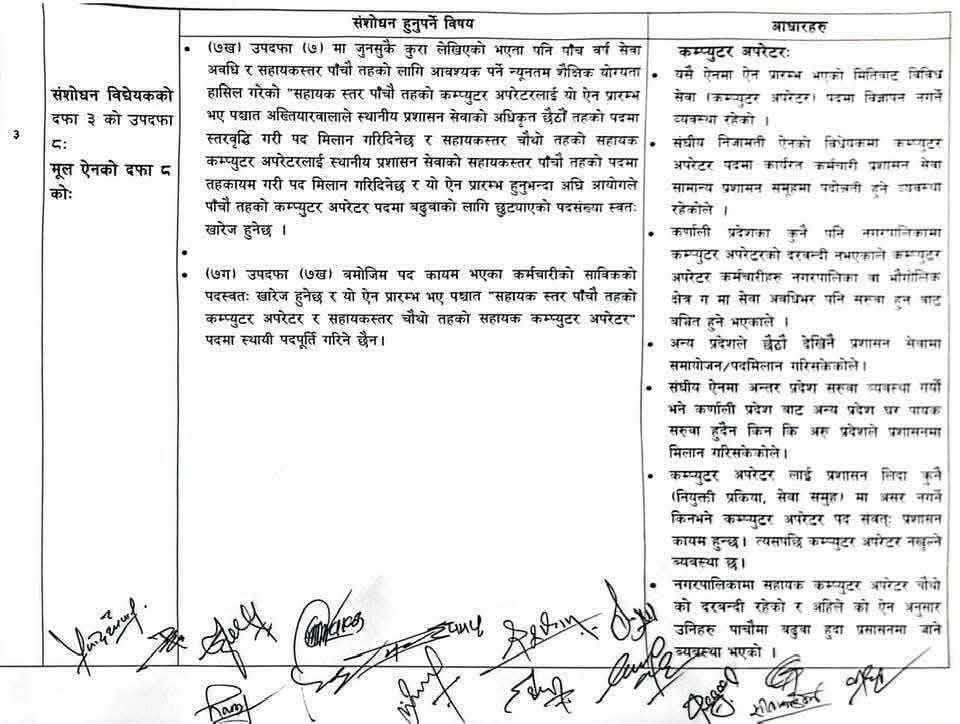 संशोधन हुनुपर्ने विषय
आधारहरु
३
संशोधन विधेयकको
दफा ३ को उपदफा
८ः
मूल ऐनको दफा ८
कोः
• (७ख) उपदफा (७) मा जुनसुकै कुरा लेखिएको भएता पनि पाँच वर्ष सेवा
अवधि र सहायकस्तर पाँचौ तहको लागि आवश्यक पर्ने न्यूनतम शैक्षिक योग्यता
हासिल गरेको "सहायक स्तर पाँचौ तहको कम्प्युटर अपरेटरलाई यो ऐन प्रारम्भ
भए पश्चात अख्तियारवालाले स्थानीय प्रशासन सेवाको अधिकृत छैठौं तहको पदमा
स्तरवृद्धि गरी पद मिलान गरिदिनेछ र सहायकस्तर चौथो तहको सहायक
कम्प्युटर अपरेटरलाई स्थानीय प्रशासन सेवाको सहायकस्तर पाँचौ तहको पदमा
तहकायम गरी पद मिलान गरिदिनेछ र यो ऐन प्रारम्भ हुनुभन्दा अघि आयोगले
पाँचौ तहको कम्प्युटर अपरेटर पदमा बढुवाको लागि छुट्याएको पदसंख्या स्वतः
खारेज हुनेछ ।
•
• (७ग) उपदफा (७ख) बमोजिम पद कायम भएका कर्मचारीको साविकको
पदस्वतः खारेज हुनेछ र यो ऐन प्रारम्भ भए पश्चात "सहायक स्तर पाँचौ तहको
कम्प्युटर अपरेटर र सहायकस्तर चौथो तहको सहायक कम्प्युटर अपरेटर"
पदमा स्थायी पदपूर्ति गरिने छैन।
कम्प्युटर अपरेटरः
• यसै ऐनमा ऐन प्रारम्भ भएको मितिबाट विविध
सेवा (कम्प्युटर अपरेटर) पदमा विज्ञापन नगर्ने
व्यवस्था रहेको ।
• संघीय निजामती ऐनको विधेयकमा कम्प्युटर
अपरेटर पदमा कार्यरत कर्मचारी प्रशासन सेवा
सामान्य प्रशासन समूहमा पदोन्नती हुने व्यवस्था
रहेकोले ।
• कर्णाली प्रदेशका कुनै पनि नगरपालिकामा
कम्प्युटर अपरेटरको दरबन्दी नभएकाले कम्प्युटर
अपरेटर कर्मचारीहरु नगरपालिका वा भौगोलिक
क्षेत्र ग मा सेवा अवधिभर पनि सरुवा हुन बाट
बञ्चित हुने भएकाले ।
• अन्य प्रदेशले छैठौं देखिनै प्रशासन सेवामा
समायोजन/पदमिलान गरिसकेकोले।
• संघीय ऐनमा अन्तर प्रदेश सरुवा व्यवस्था गर्यो
भने कर्णाली प्रदेश बाट अन्य प्रदेश घर पायक
सरुवा हुदैन किन कि अरु प्रदेशले प्रशासनमा
मिलान गरिसकेकोले।
• कम्प्युटर अपरेटर लाई प्रशासन लिदा कुनै
(नियुक्ती प्रकिया, सेवा समुह) मा असर नगर्ने
किनभने कम्प्युटर अपरेटर पद संवत्ः प्रशासन
कायम हुन्छ। त्यसपछि कम्प्युटर अपरेटर नखुल्ने
व्यवस्था छ।
• नगरपालिकामा सहायक कम्प्युटर अपरेटर चौथो
को दरबन्दी रहेको र अहिले को ऐन अनुसार
उनिहरु पाचौमा बढुवा हुदा प्रसासनमा जाने
व्यवस्था भएको ।